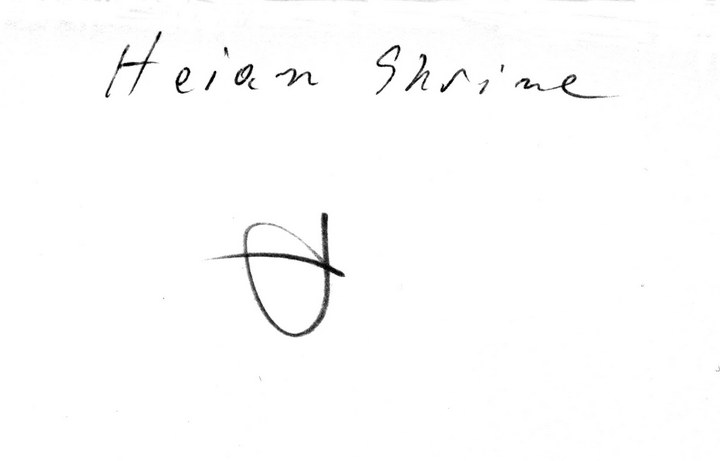 Heian Shrine